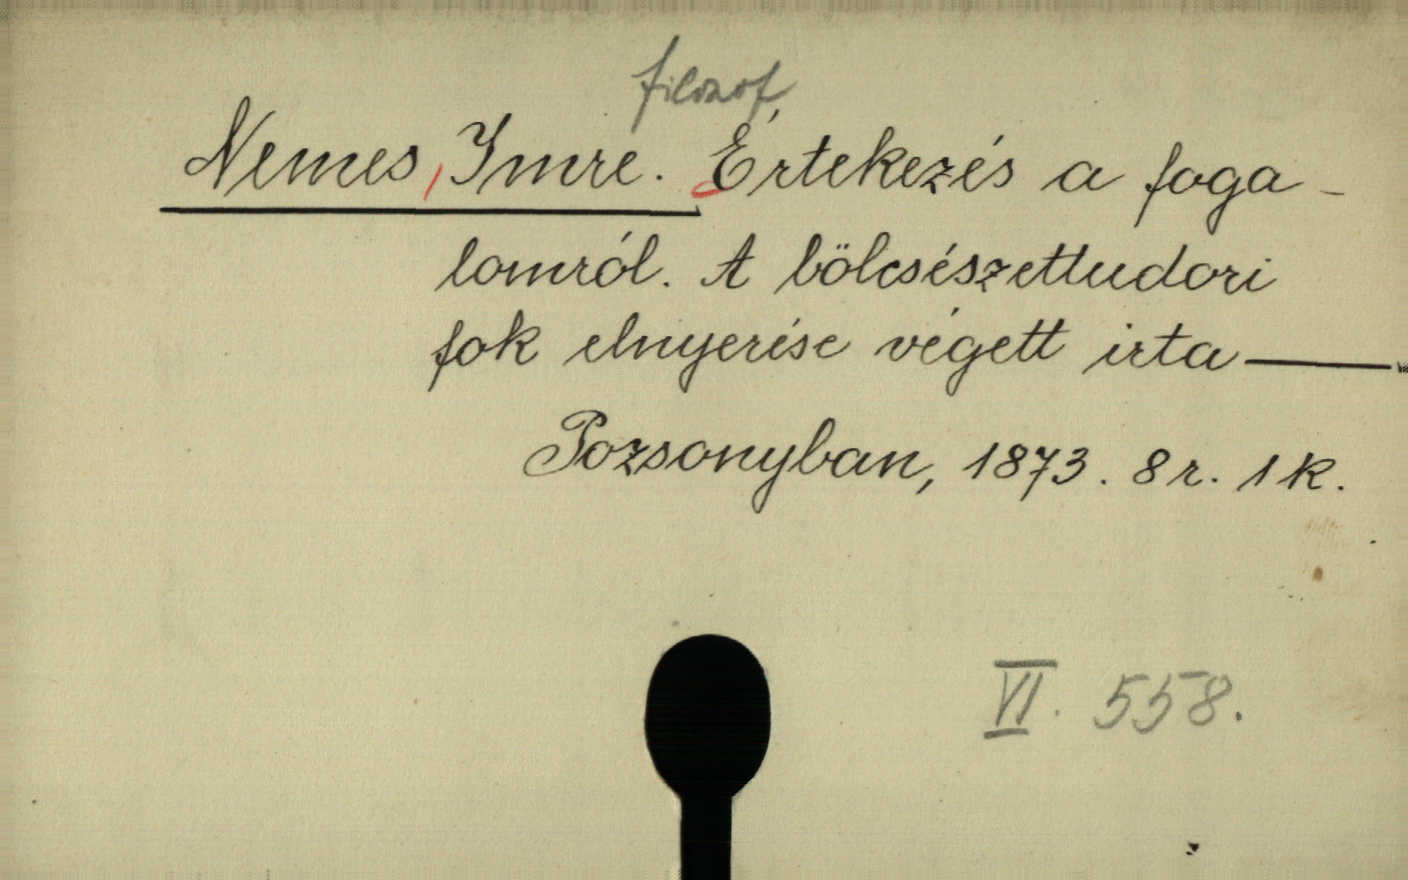 filozof
Nemes, Imre. Értekezés a foga-
lomról. A bölcsészettudori
fok elnyerése végett irta —
Pozsonyban, 1873. 8r. 1k.
VI. 558.